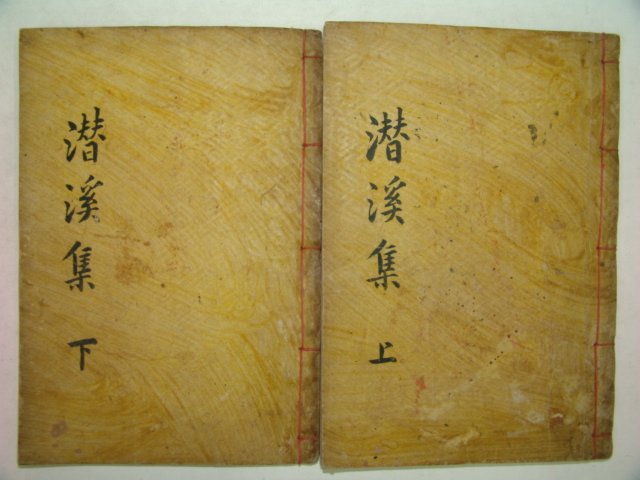 潛溪集 上
潛溪集 下